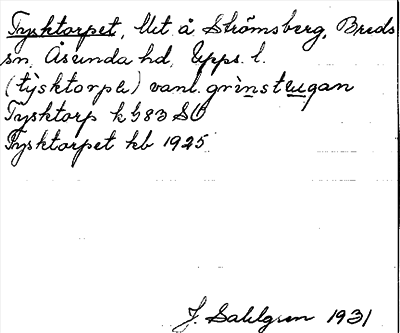 Tysktorpet, lht å Strömsberg, Breds
sn, Åsunda hd, Upps. l.
(tỳsktorpe) vanl. grìnstugan
Tysktorp k 583 SO
Tysktorpet kb 1925
J. Sahlgren 1931